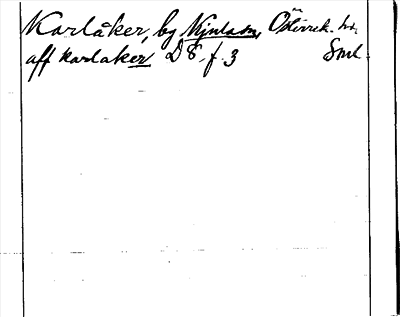 Karlåker, by Kjulaås, Österrek. hd.
aff karlaker D8, f. 3 Sml.